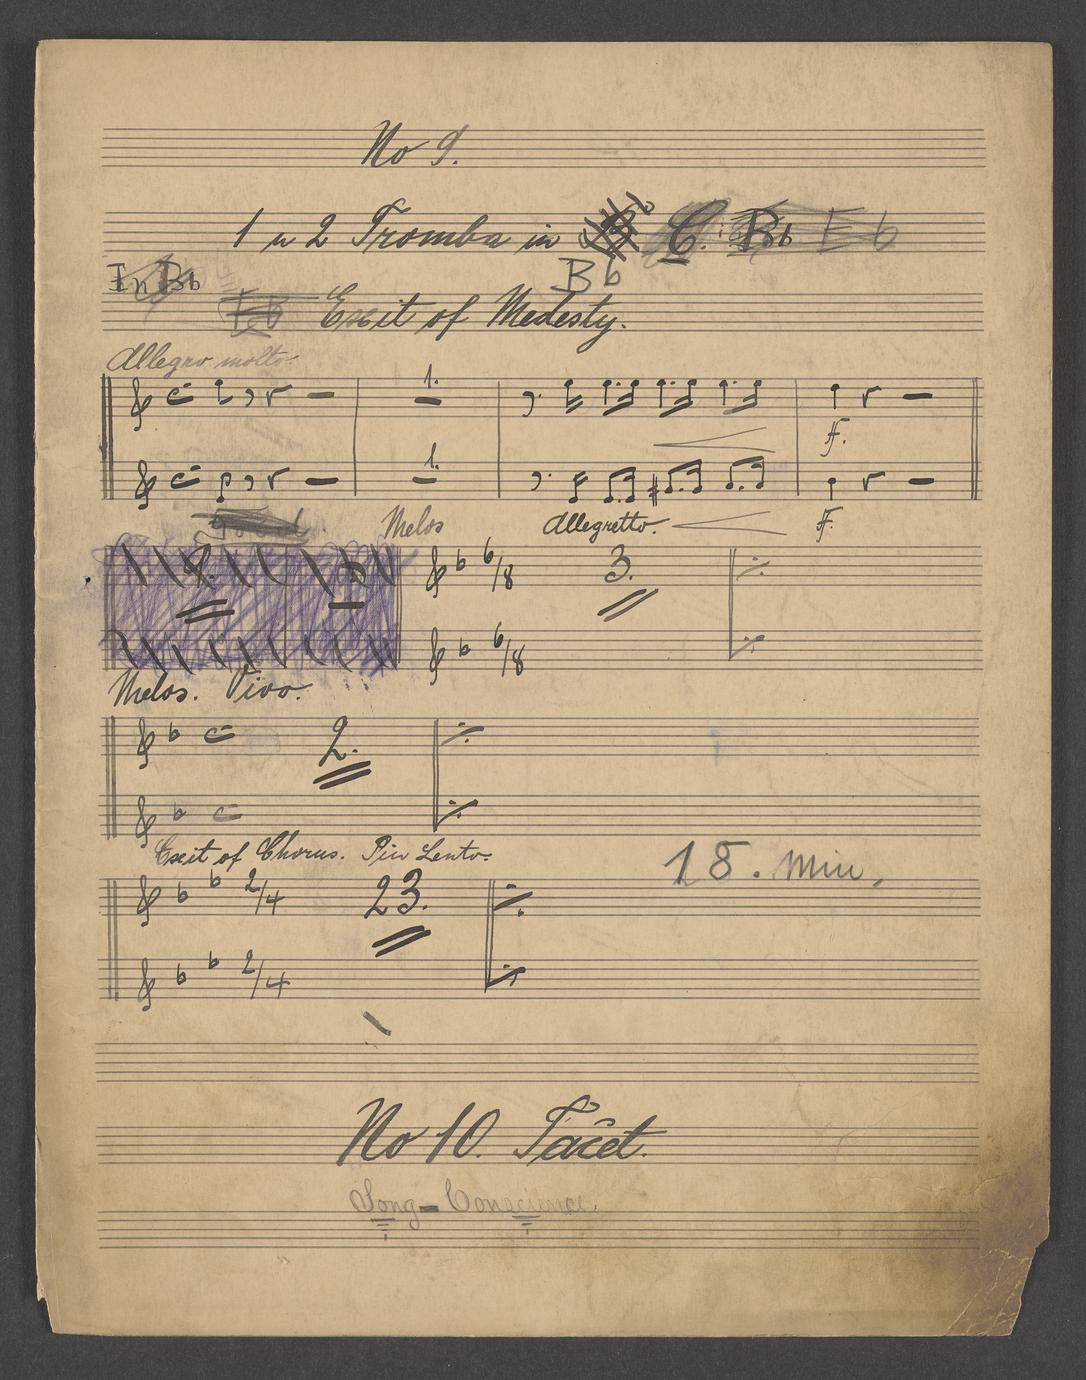 No 9.
1 u 2 Tromba in C. Bb Eb
In Bb Bb
Eb Exit of Medesty.
Allegro molto.
1.
ff.
1.
Melos Allegretto. ff.
6/8 3.
6/8
Melos. Vivo.
2.
Exit of Chorus. Piu Lento.
18. Min.
2/4 23.
2/4
No 10. Tacet.
Song - Conscience.